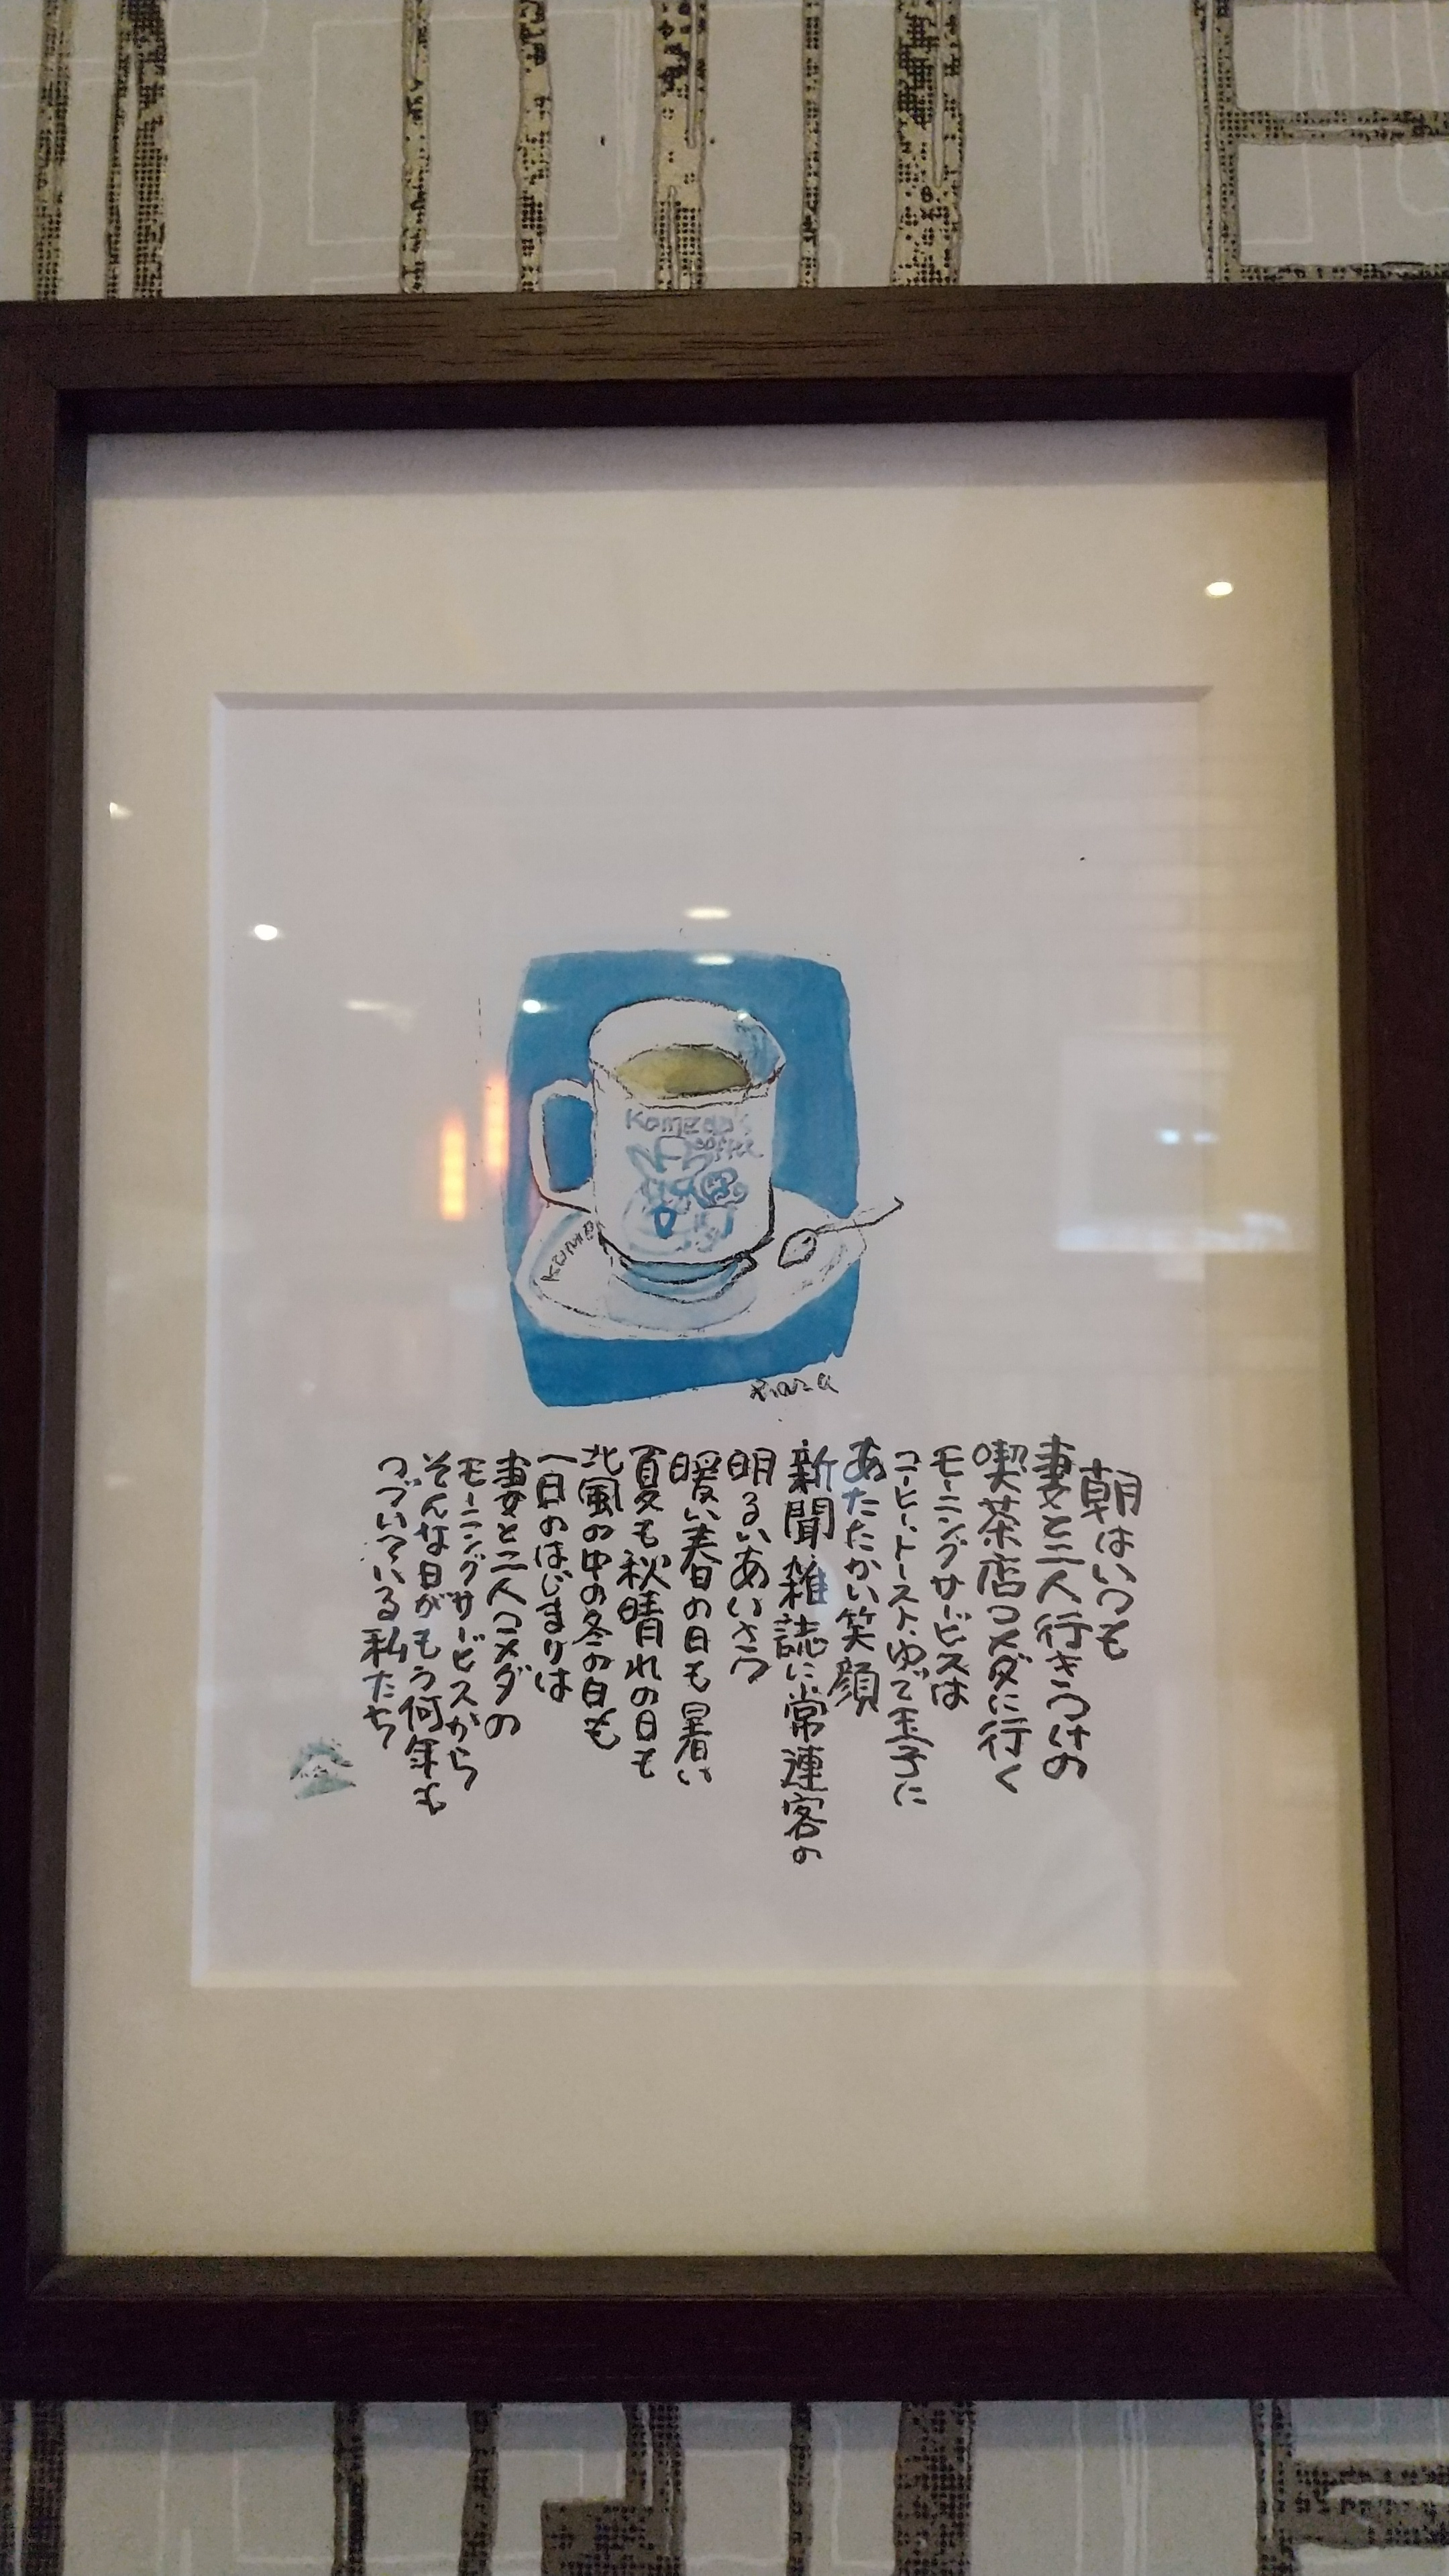 Komeda's
Coffee
朝はいつも
妻と二人行きつけの
喫茶店コメダに行く
モーニングサービスは
コーヒー、トースト、ゆで玉子に
あたたかい笑顔
新聞雑誌に常連客の
明るいあいさつ
暖い春の日も暑い
夏も秋晴れの日も
北風の中の冬の日も
一日のはじまりは
妻と二人コメダの
モーニングサービスから
そんな日がもう何年も
つづいている私たち